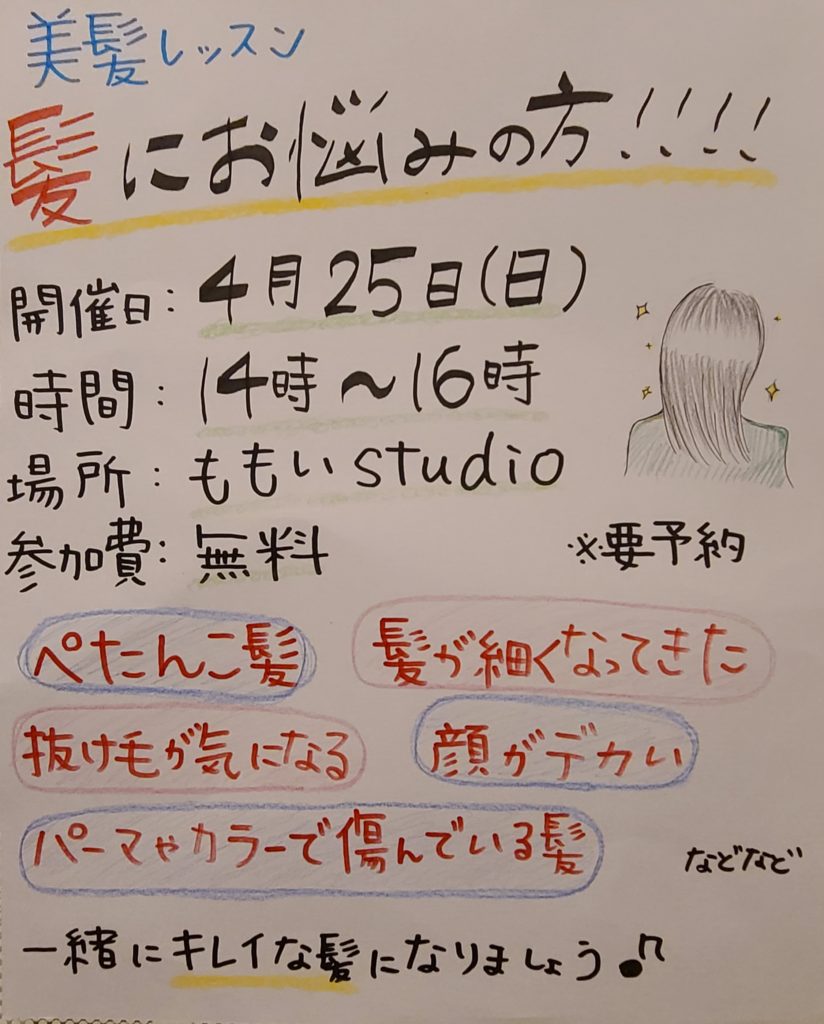 美髪レッスン
髪にお悩みの方!!!!
開催日:4月25日(日)
時間:14時〜16時
場所:ももいstudio
参加費:無料 ※要予約
ぺたんこ髪 髪が細くなってきた
抜け毛が気になる 顔がデカい
パーマやカラーで傷んでいる髪 などなど
一緒にキレイな髪になりましょう♪